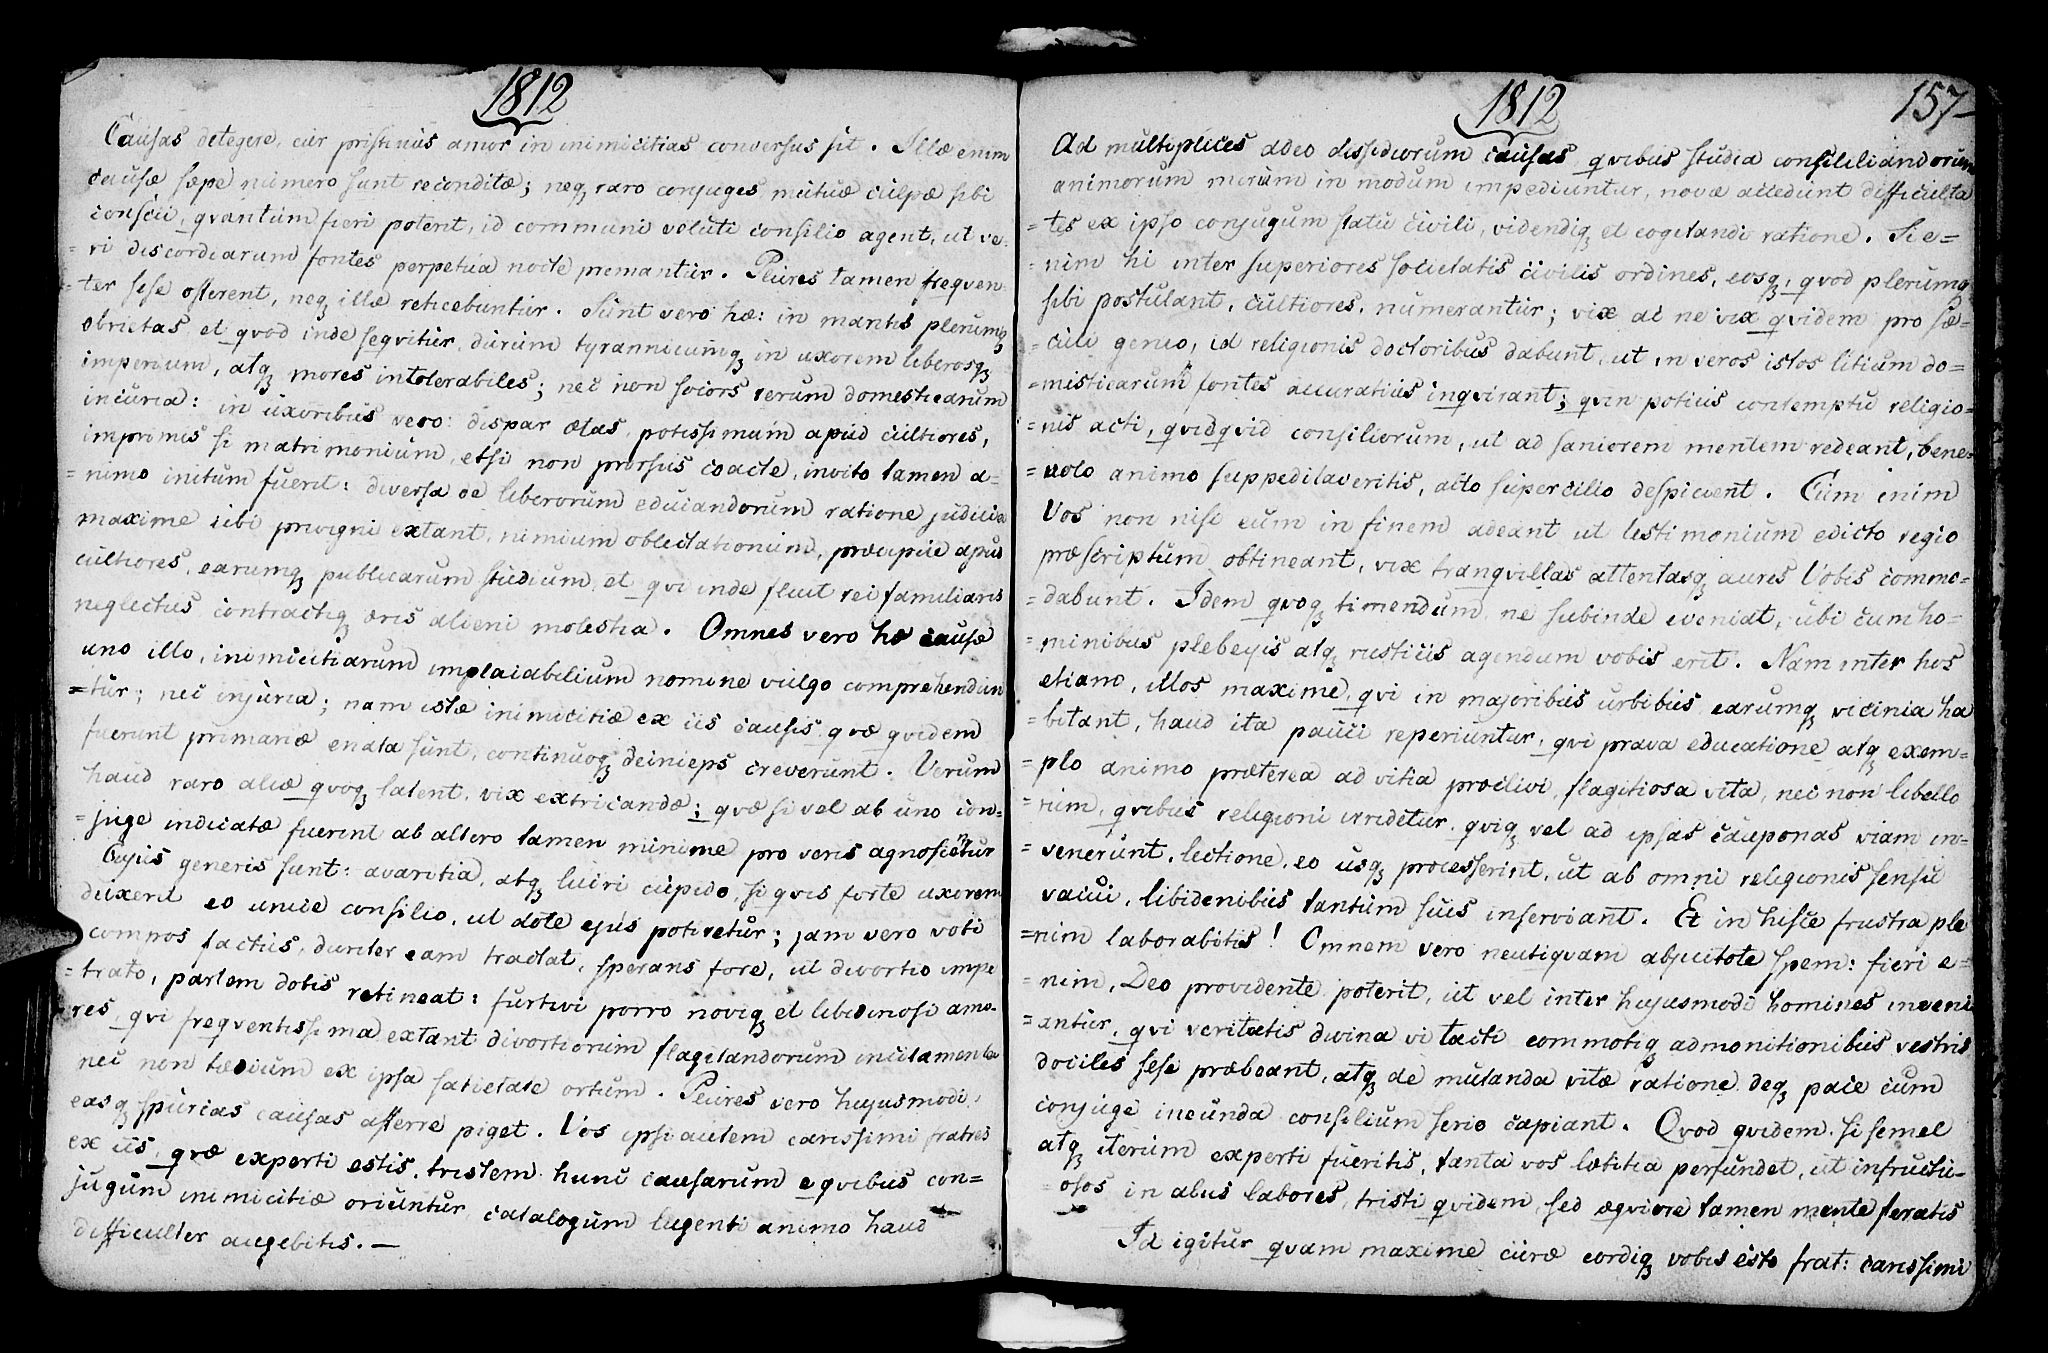 1812
Causas detegere, cur pristinus amor in inimicitias conversus sit. Illæ enim
causæ sæpe numero sunt reconditæ; neq raro conjuges mutuæ culpæ sibi
conscii, qvantum fieri potent, id communi veluti consilio agent, ut ve-
=ri discordiarum fontes perpetua nocte premantur. Plures tamen freqven-
=ter sese offerent, neq illæ reticebuntur. Sunt vero hæ: in mantis plerumq
ebrietas et qvod inde seqvitur, durum tyrannicumq in uxorem liberosq
imperium, atq mores intolerabiles; nec non socors rerum domesticarum
incuria: in uxoribus vero: dispar ætas, potissimum apud cultiores,
imprimis si matrimonium, etsi non prorsus coacte, invito tamen a=
=nimo initum fuerit: diversa de liberorum educandorum ratione judicia
maxime ubi privigni extant, nimium oblectationum, præcipue apud
cultiores, earumq publicarum studium, et qvi inde fluit rei familiaris
neglectus contractiq æris alieni molestia. Omnes vero hæ causæ
uno illo, inimicitiarum implacabilium nomine vulgo comprehendun
=tur; nec injuria; nam istæ inimicitiæ ex iis causis qvæ qvidem
fuerunt primariæ enata sunt, continuoq deinceps creverunt. Verum
haud raro aliæ qvoq latent, vix extricandæ; qvæ si vel ab uno con-
=juge indicatæ fuerint ab altero tamen minime pro veris agnoscentur
Cujus generis sunt: avaritia, atq lucri cupido, si qvis forte uxorem
duxerit eo unice consilio, ut dote ejus potiretur; jam vero voti
compos factus, duriter eam tractat, sperans fore, ut divortio impe
=trato, partem dotis retineat: furtivi porro noviq et libidinosi amo-
res, qvi freqventissima extant divortiorum flagitandorum incitamenta
nec non tædium ex ipsa satietate ortum. Plures vero hujusmodi,
easq spurcas causas afferre piget. Vos ipsi autem carissimi fratres
ex iis, qvæ experti estis, tristem hunc causarum e qvibus con=
jugum inimicitiæ oriuntur catalogum lugenti animo haud
difficulter augebitis. —
1812
157
Ad multiplices adeo dissidiorum causas qvibus studia consiliandorum
animorum mirum in modum impediuntur, novæ accedunt difficulta
=tes ex ipso conjugum statu civili, videndiq et cogitandi ratione. Si e=
=nim hi inter superiores societatis civilis ordines, eosq, qvod plerumq
sibi postulant, cultiores, numerantur; vix ac ne vix qvidem pro sæ=
=culi genio, id religionis doctoribus dabunt, ut in veros istos litium do=
=misticarum fontes accuratius inqvirant; qvin potius contemptu religio=
=nis acti, qvidqvid consiliorum, ut ad saniorem mentem redeant, bene=
=volo animo suppeditaveritis, alto supercilio despicient. Cum enim
Vos non nisi eum in finem adeant ut testimonium edicto regio
præscriptum obtineant, vix tranqvillas attentasq aures Vobis commo=
=dabunt. Idem qvoq timendum, ne subinde eveniat, ubi cum ho=
=minibus plebejis atq rusticis agendum vobis erit. Nam inter hos
etiam, illos maxime, qvi in majoribus urbibus earumq vicinia ha
=bitant, haud ita pauci reperiuntur, qvi prava educatione atq exem=
=plo animo præterea ad vitia proclivi, flagitiosa vita, nec non libello
=rum, qvibus religioni irridetur, qviq vel ad ipsas cauponas viam in=
=venerunt, lectione, eo usq processerint, ut ab omni religionis sensu
vacui, libidinibus tantum suis inserviant. Et in hisce frustra ple
=nim laborabitis! Omnem vero neutiquam abjicitote spem: fieri e=
=nim, Deo providente poterit, ut vel inter hujusmodi homines inveni
=antur, qvi veritatis divina vi tacti commotiq admonitionibus vestris
dociles sese præbeant, atq de mutanda vitæ ratione deq pace cum
conjuge ineunda consilium serio capiant. Qvod qvidem si semel
atq iterum experti fueritis, tanta vos lætitia perfundet, ut infructu=
=osos in aliis labores, tristi qvidem, sed æqviore tamen mente feratis
Id igitur qvam maxime curæ cordiq vobis esto frat: carissimi